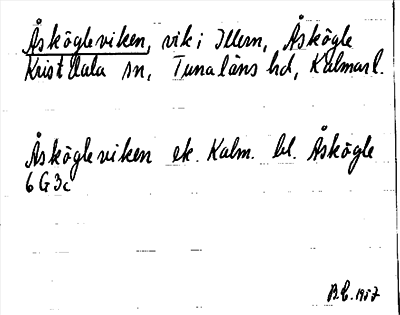 Åskögleviken, vik i Illern, Åskögle
Kristdala sn, Tunaläns hd, Kalmar l.
Åskögleviken ek. Kalm. bl. Åskögle
6 G 3c
B.C. 1957